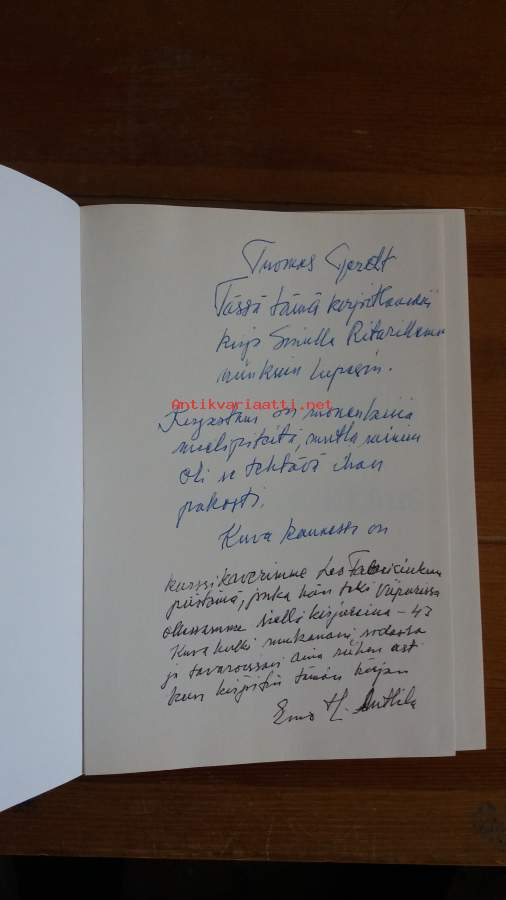 Tuomas Gerdt
Tässä tämä kirjoittamani
kirja Sinulle Ritarillemme
niinkuin lupasin.
Antikvariaatti.net
Kirjastani on monenlaisia
mielipiteitä, mutta minun
oli se tehtävä ihan
pakosti.
Kuva kannessa on
kurssikaverimme Leo
piirtämä, jonka hän teki Viipurissa
ollessamme siellä -43
Kuva kulki mukanani sodassa
ja tavaroissani aina siihen asti
kun kirjoitin tämän kirjan
Eino H. Anttila